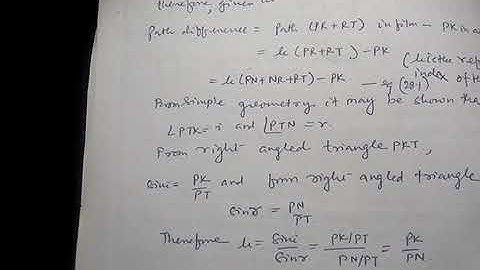 Therefore, given
Path difference = Path (PR+RT) in film - PK in a
= μ (PR+RT) - PK
(μ is the ref
= μ (PN+NR+RT) - PK. — eq (28.1) index of th
From simple geometry it may be shown tha
∠PTK = i and ∠PTN = r.
From right angled triangle PKT,
Sin i = PK/PT and from right-angled triangle
Sin r = PN/PT
Therefore μ = Sin i/Sin r = PK/PT / PN/PT = PK/PN.